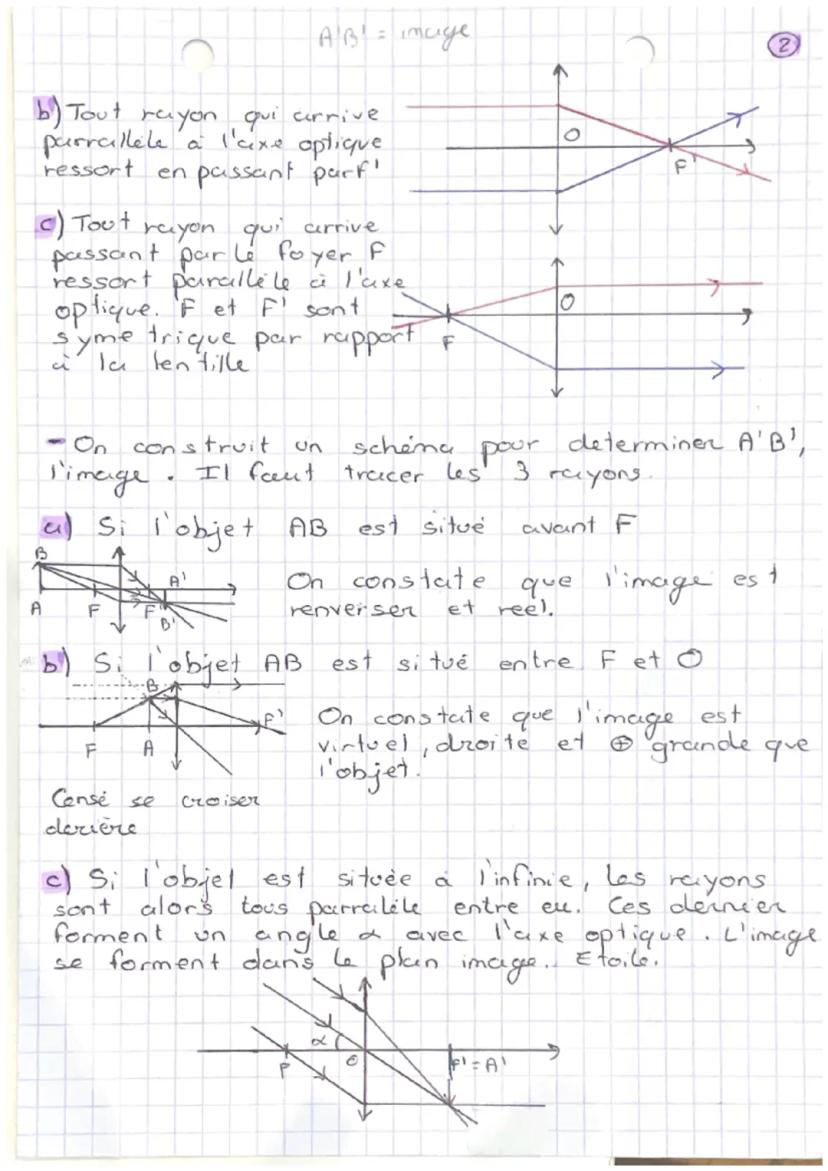 A'B' = image
2
b) Tout rayon qui arrive
parralléle à l'axe optique
ressort en passant parf'
O
F'
c) Tout rayon qui arrive
passant par le foyer F
ressort paralléle à l'axe
optique. F et F' sont
symetrique par rapport
à la lentille
O
F
- On construit un schéma pour determiner A'B',
l'image. Il faut tracer les 3 rayons.
a) Si l'objet AB est situé avant F
B
A'
A F F'
B'
On constate que l'image est
renverser et reel.
b) Si l'objet AB est situé entre F et O
B
F'
F A
On constate que l'image est
virtuel, droite et ⊕ grande que
l'objet.
Censé se croiser
derière
c) Si l'objet est située à l'infinie, les rayons
sont alors tous parraléle entre eu. Ces dernier
forment un angle α avec l'axe optique. L'image
se forment dans le plan image. Etoile.
α
F O F' = A'